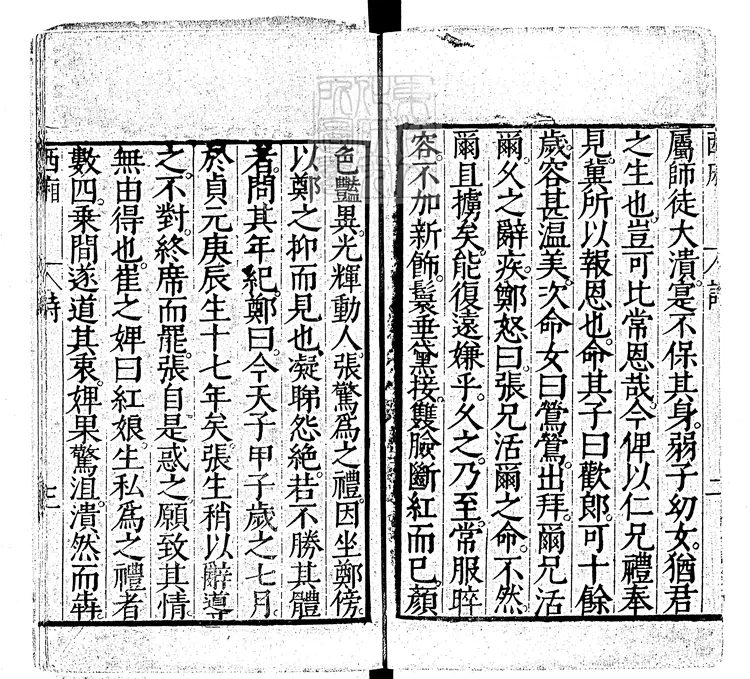 屬師徒大潰。寔不保其身。弱子幼女。猶君
之生也。豈可比常恩哉。今俾以仁兄禮奉
見。冀所以報恩也。命其子曰歡郎。可十餘
歲。容甚温美。次命女曰鶯鶯。出拜爾兄。活
爾久之辭疾。鄭怒曰。張兄活爾之命。不然
爾且擄矣。能復遠嫌乎。久之乃至。常服睟
容。不加新飾。鬟垂黛接。雙臉斷紅而已。顔
色豔異。光輝動人。張驚爲之禮。因坐鄭傍。
以鄭之抑而見也。凝睇怨絶。若不勝其體
者。問其年紀。鄭曰。今天子甲子歲之七月。
於貞元庚辰生十七年矣。張生稍以辭導
之。不對。終席而罷。張自是惑之。願致其情
無由得也。崔之婢曰紅娘。生私爲之禮者
數四。乘間遂道其衷。婢果驚沮。潰然而犇。
西廂 詩 三